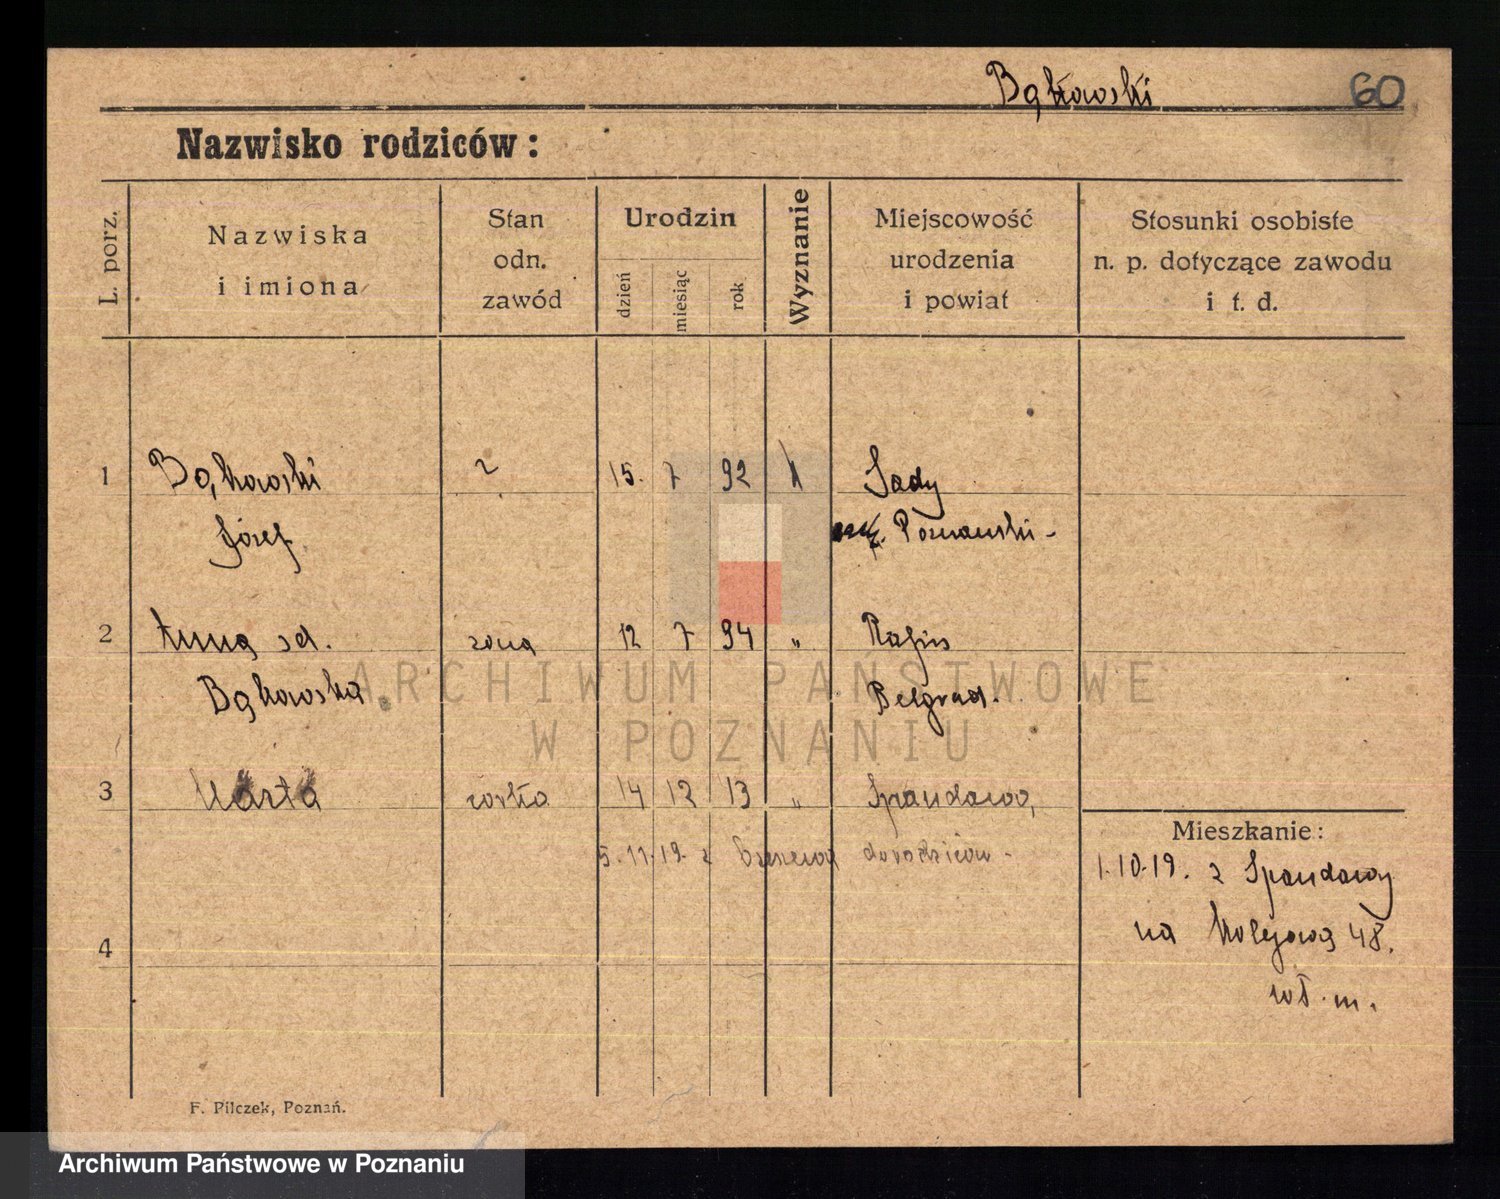 Bąkowski 60
Nazwisko rodziców:
L. porz.
Nazwiska
i imiona
Stan
odn.
zawód
Urodzin
dzień
miesiąc
rok
Wyznanie
Miejscowość
urodzenia
i powiat
Stosunki osobiste
n. p. dotyczące zawodu
i t. d.
1 Bąkowski 15. 7 92 Sady
Józef Poznański -
2 Anna żona 12 7 94 "
Bąkowska Belgrad.
3 Marta córka 14 12 13 " Spandawa,
5.11.19. z do rodziców -
Mieszkanie:
1.10.19. z Spandawy
na Kolejową 48.
wł. m.
4
F. Pilczek, Poznań.
ARCHIWUM PAŃSTWOWE
W POZNANIU
Archiwum Państwowe w Poznaniu